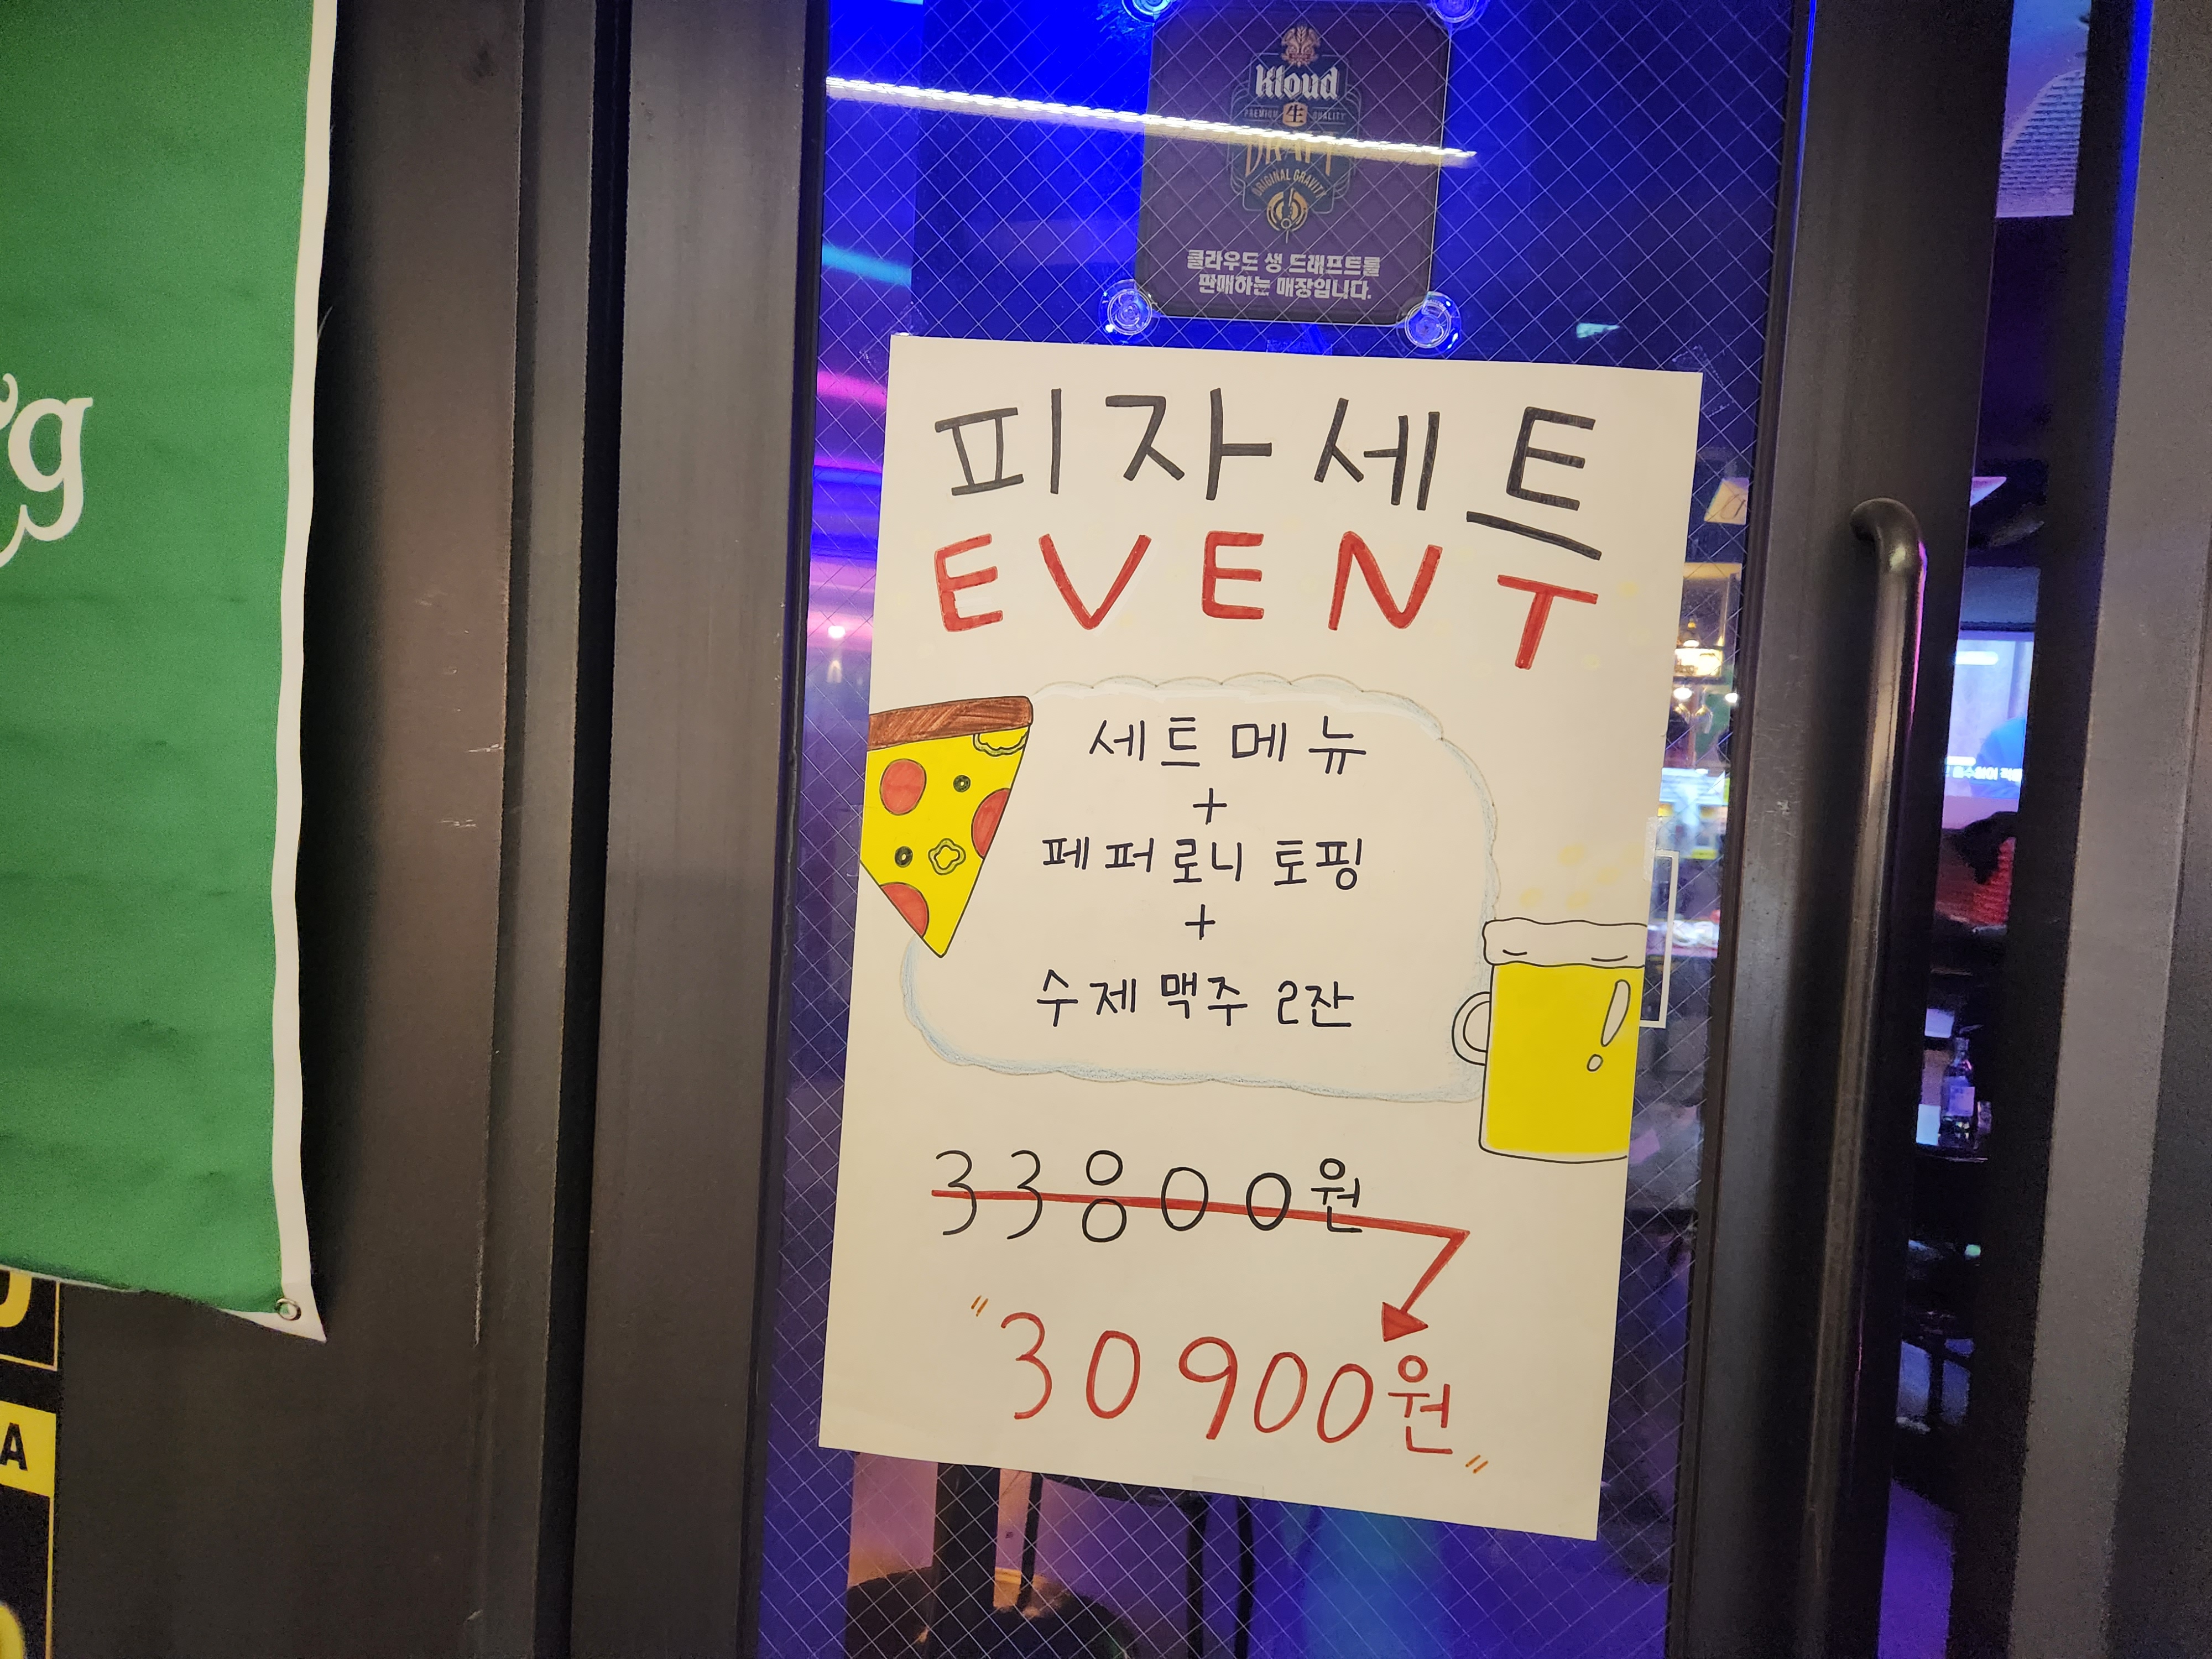 Kloud
PREMIUM 生 QUALITY
DRAFT
ORIGINAL GRAVITY
클라우드 생 드래프트를
판매하는 매장입니다.
피자세트
EVENT
세트 메뉴
+
페퍼로니 토핑
+
수제 맥주 2잔
33800원
"30900원"
g
A